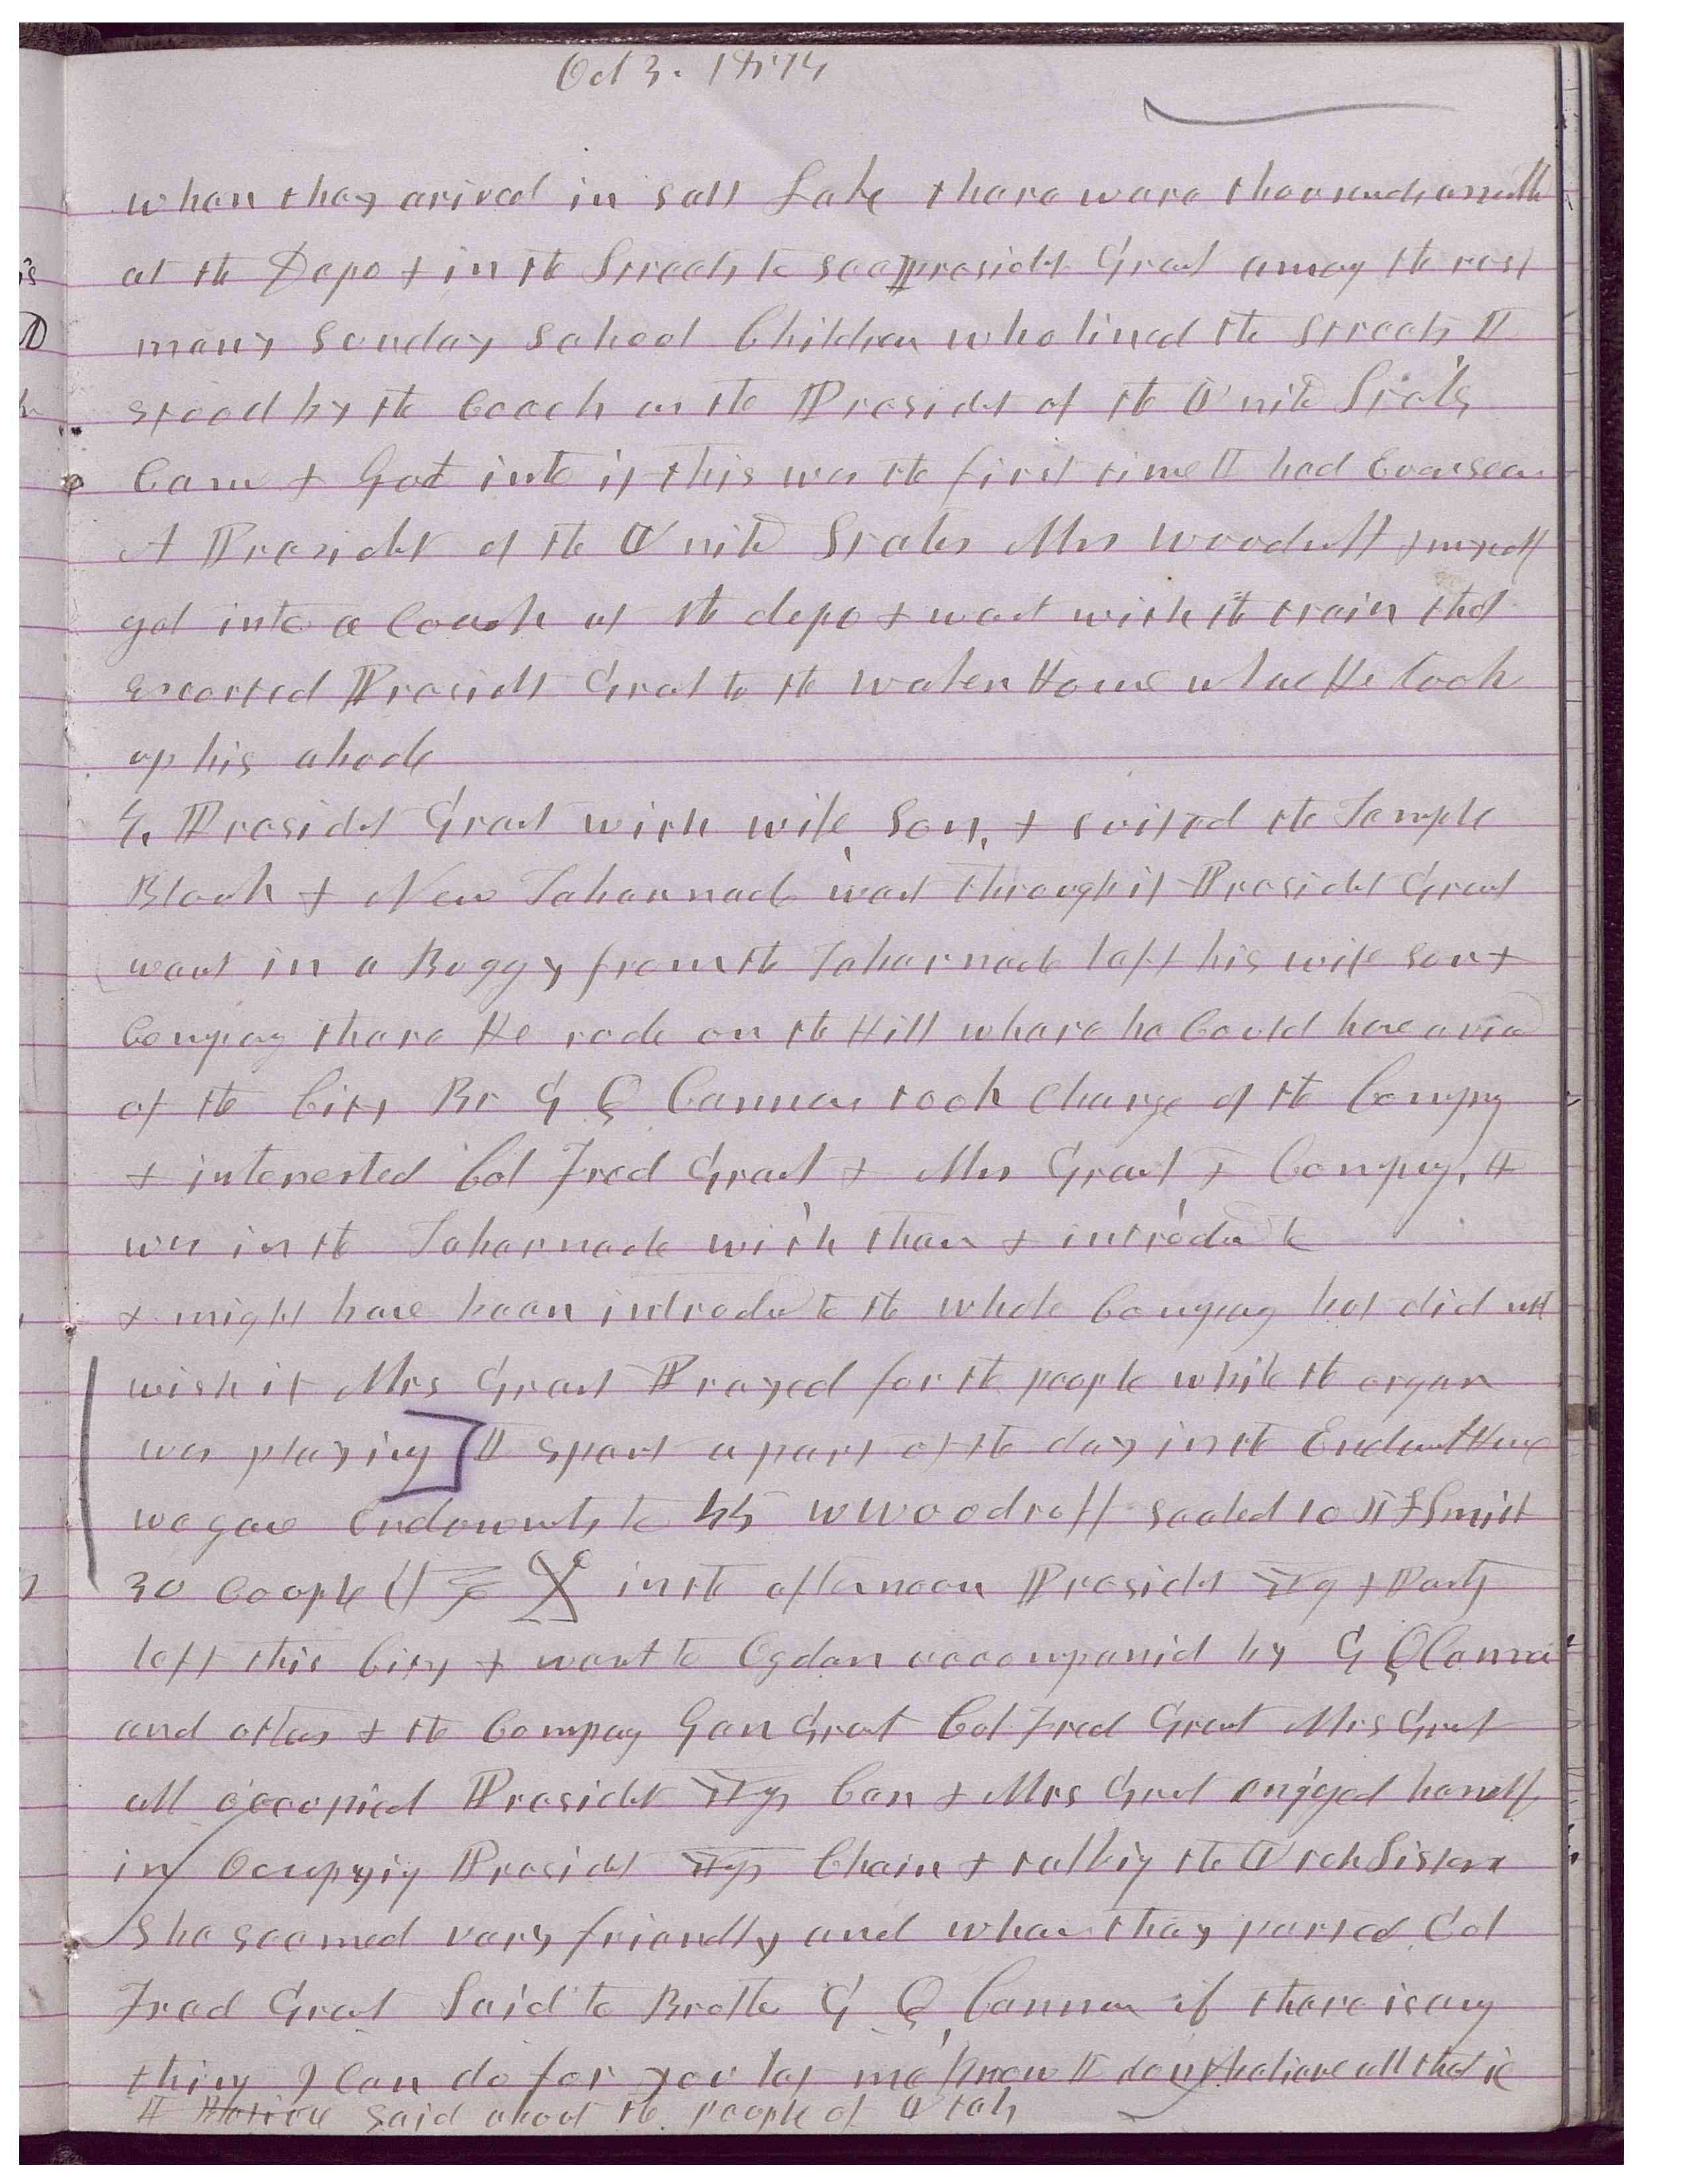 Oct 3. 1875
when they arived in Salt Lake there were thousands assmbld
at the Depo & in the Streets to see President Grant among the rest
many Sunday School Children who lined the Streets I
stood by the Coach as the President of the Unitd States
Came & Got into it this was the first time I had Ever seen
A President of the Unitd States Mrs Woodruff & myself
got into a Coach at the depo & went with the train that
escorted Presidt Grant to the Walker House whare He took
up his abode
4, President Grant with wife, Son, & suit visited the Temple
Block & New Tabernacle went through it President Grant
went in a Buggy from the Tabernacle left his wife son &
Company there He rode on the Hill where he Could have a view
of the City Br G Q Cannon took Charge of the Company
& interested Col Fred Grant & Mrs Grant & Company, I
was in the Tabernacle with them & introduced to
& might have been introduced to the whole Company but did not
wish it Mrs Grant Prayed for the people while the organ
was playing ] I spent a part of the day in the Endowmt House
we gave Endowments to 55 W Woodruff sealed 10 J F Smith
30 Couple in the afternoon President Yg & Party
left this City & went to Ogden accompanied by G Q Cannon
and others & the Company Gen Grant Col Fred Grant Mrs Grant
all occopied President Yg Car & Mrs Grant enjoyed herself
in Ocupying President Ygs Chair & talking the Utah Sisters
She seemed very friendly and when they parted Col
Fred Grant Said to Brother G Q Cannon if there is any
thing I Can do for you let me know I dont believe all that is
said about the people of Utah